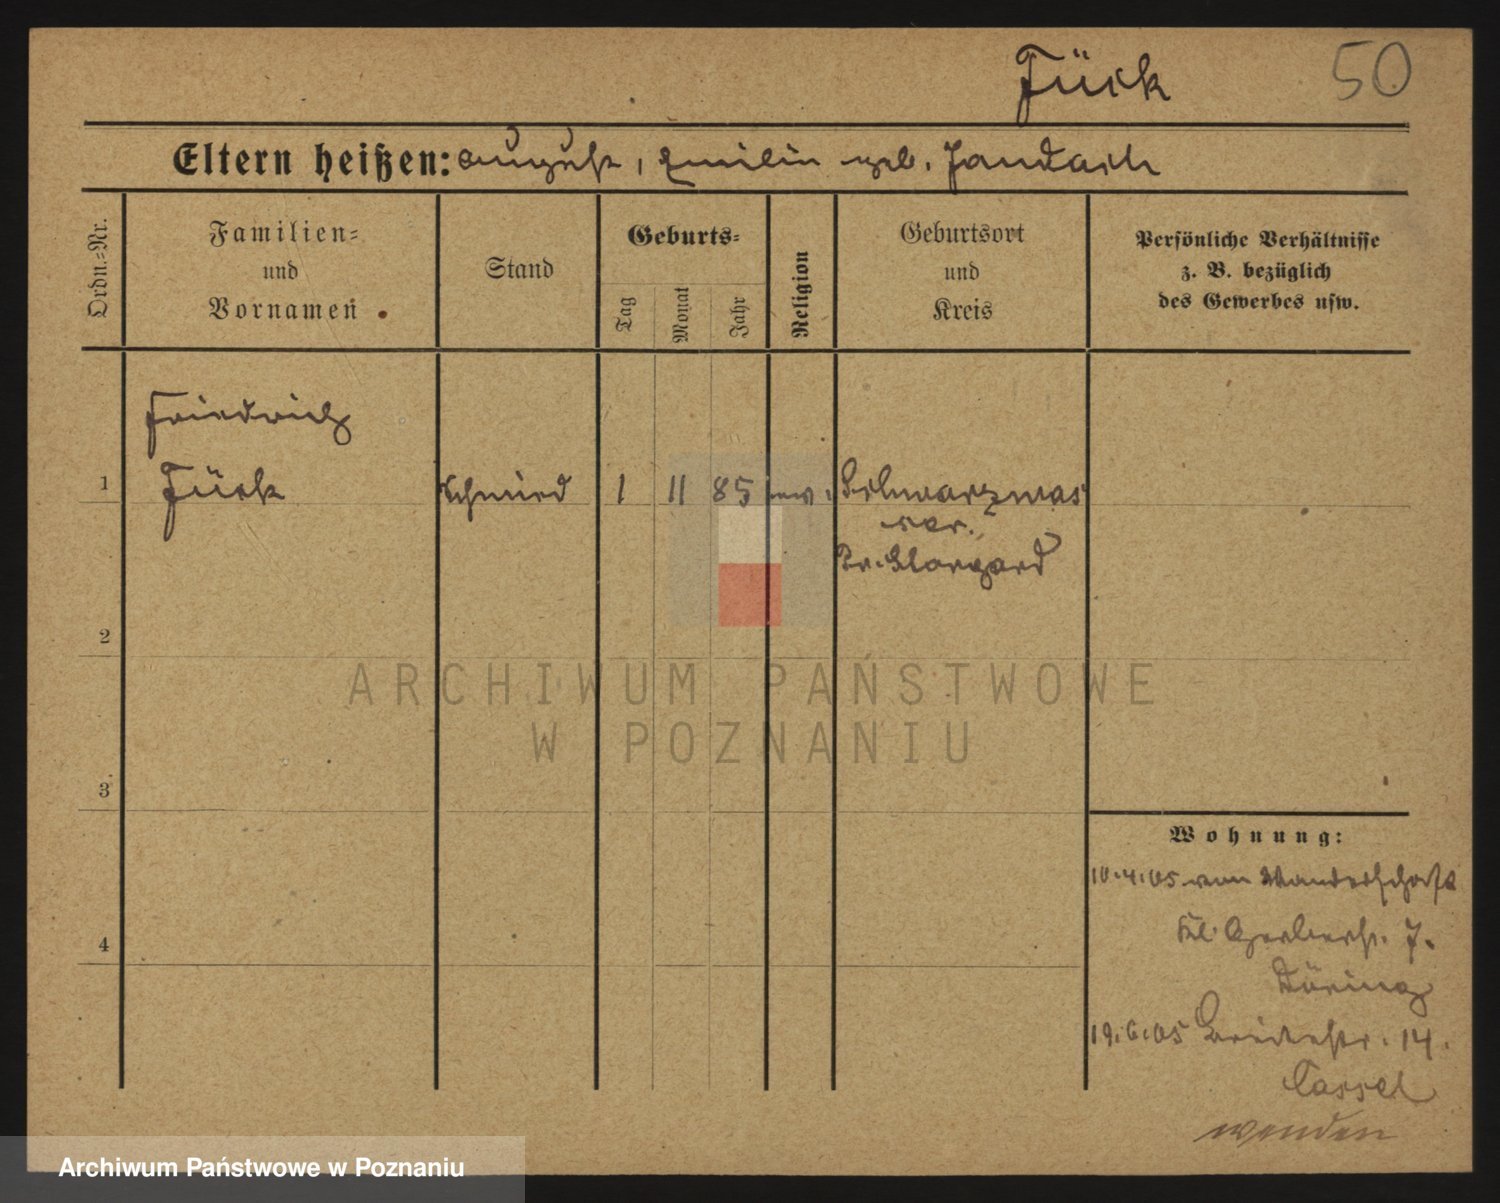 Fück 50
Eltern heißen: August, Emilie geb. Jandach
Ordn.-Nr.
Familien-
und
Vornamen
Stand
Geburts-
Tag
Monat
Jahr
Religion
Geburtsort
und
Kreis
Persönliche Verhältnisse
z. B. bezüglich
des Gewerbes usw.
Friedrich
1 Fück Schmied 1 11 85 ev. Schwarzwas
ser.
Pr. Stargard
2
3
4
Wohnung:
10.4.05 von Wanderschaft
Kl. Gerberst. 7.
Döring
19.6.05 Breitestr. 14.
Cassel
wenden
ARCHIWUM PAŃSTWOWE
W POZNANIU
Archiwum Państwowe w Poznaniu